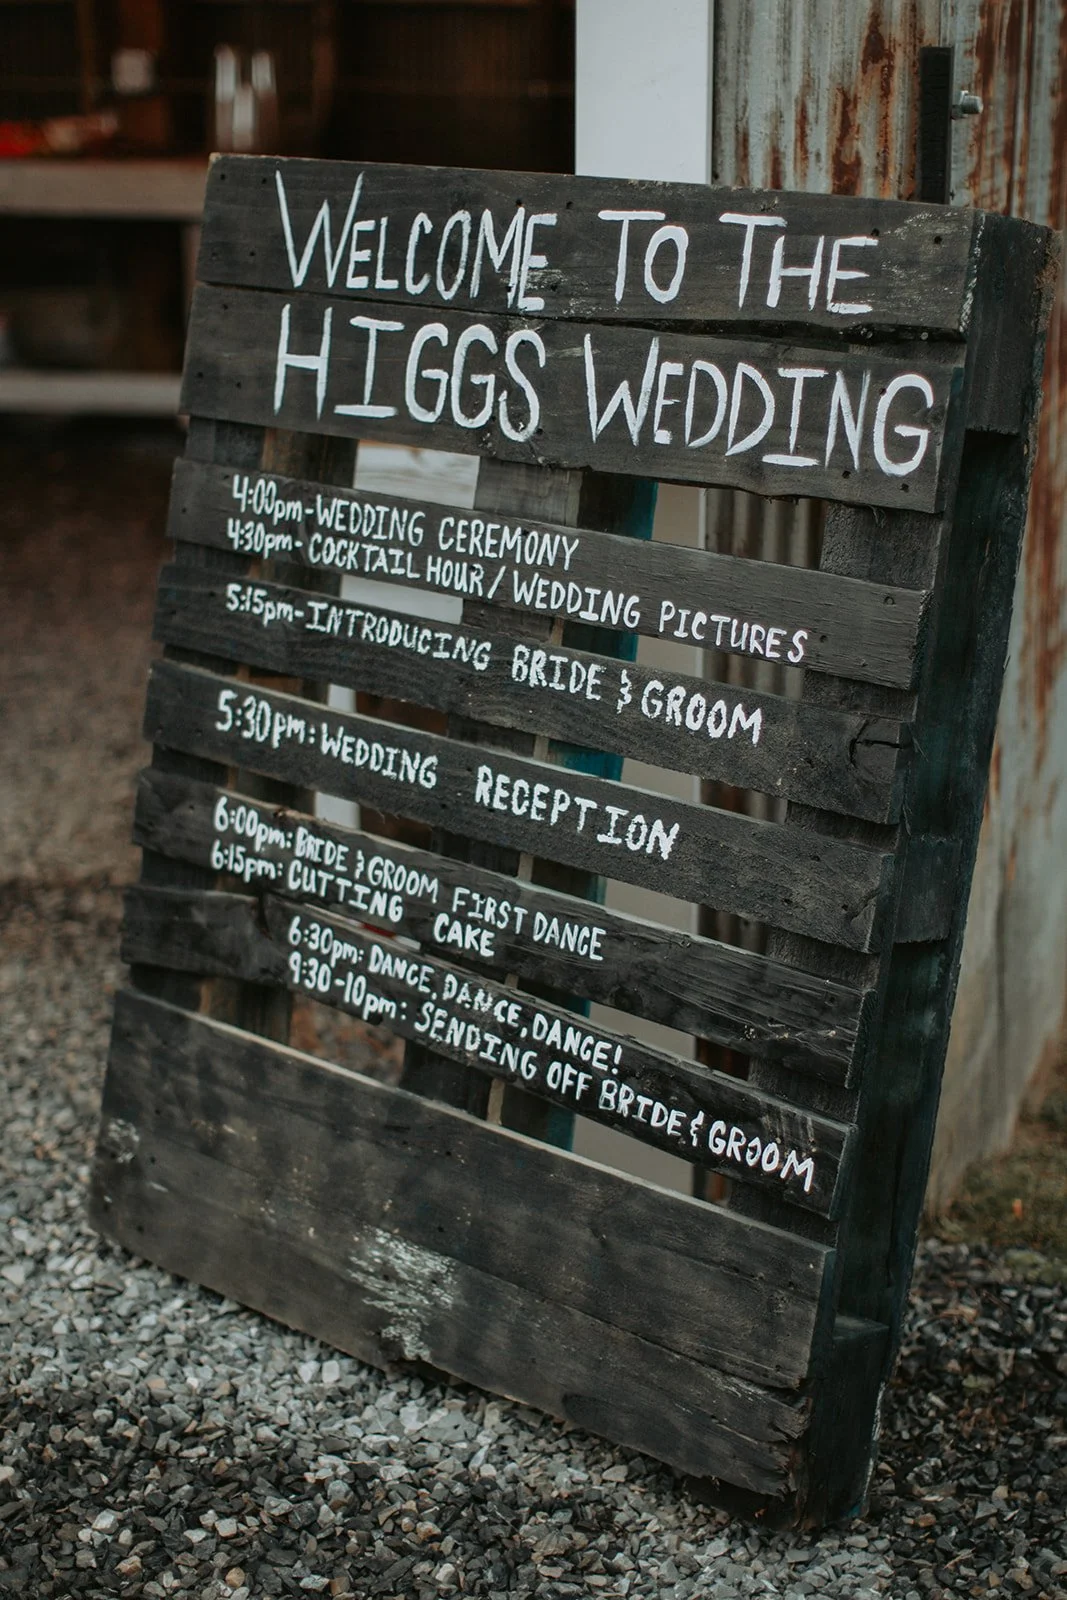 WELCOME TO THE
HIGGS WEDDING
4:00pm-WEDDING CEREMONY
4:30pm- COCKTAIL HOUR / WEDDING PICTURES
5:15pm-INTRODUCING BRIDE & GROOM
5:30pm: WEDDING RECEPTION
6:00pm: BRIDE & GROOM FIRST DANCE
6:15pm: CUTTING CAKE
6:30pm: DANCE, DANCE, DANCE!
9:30-10pm: SENDING OFF BRIDE & GROOM